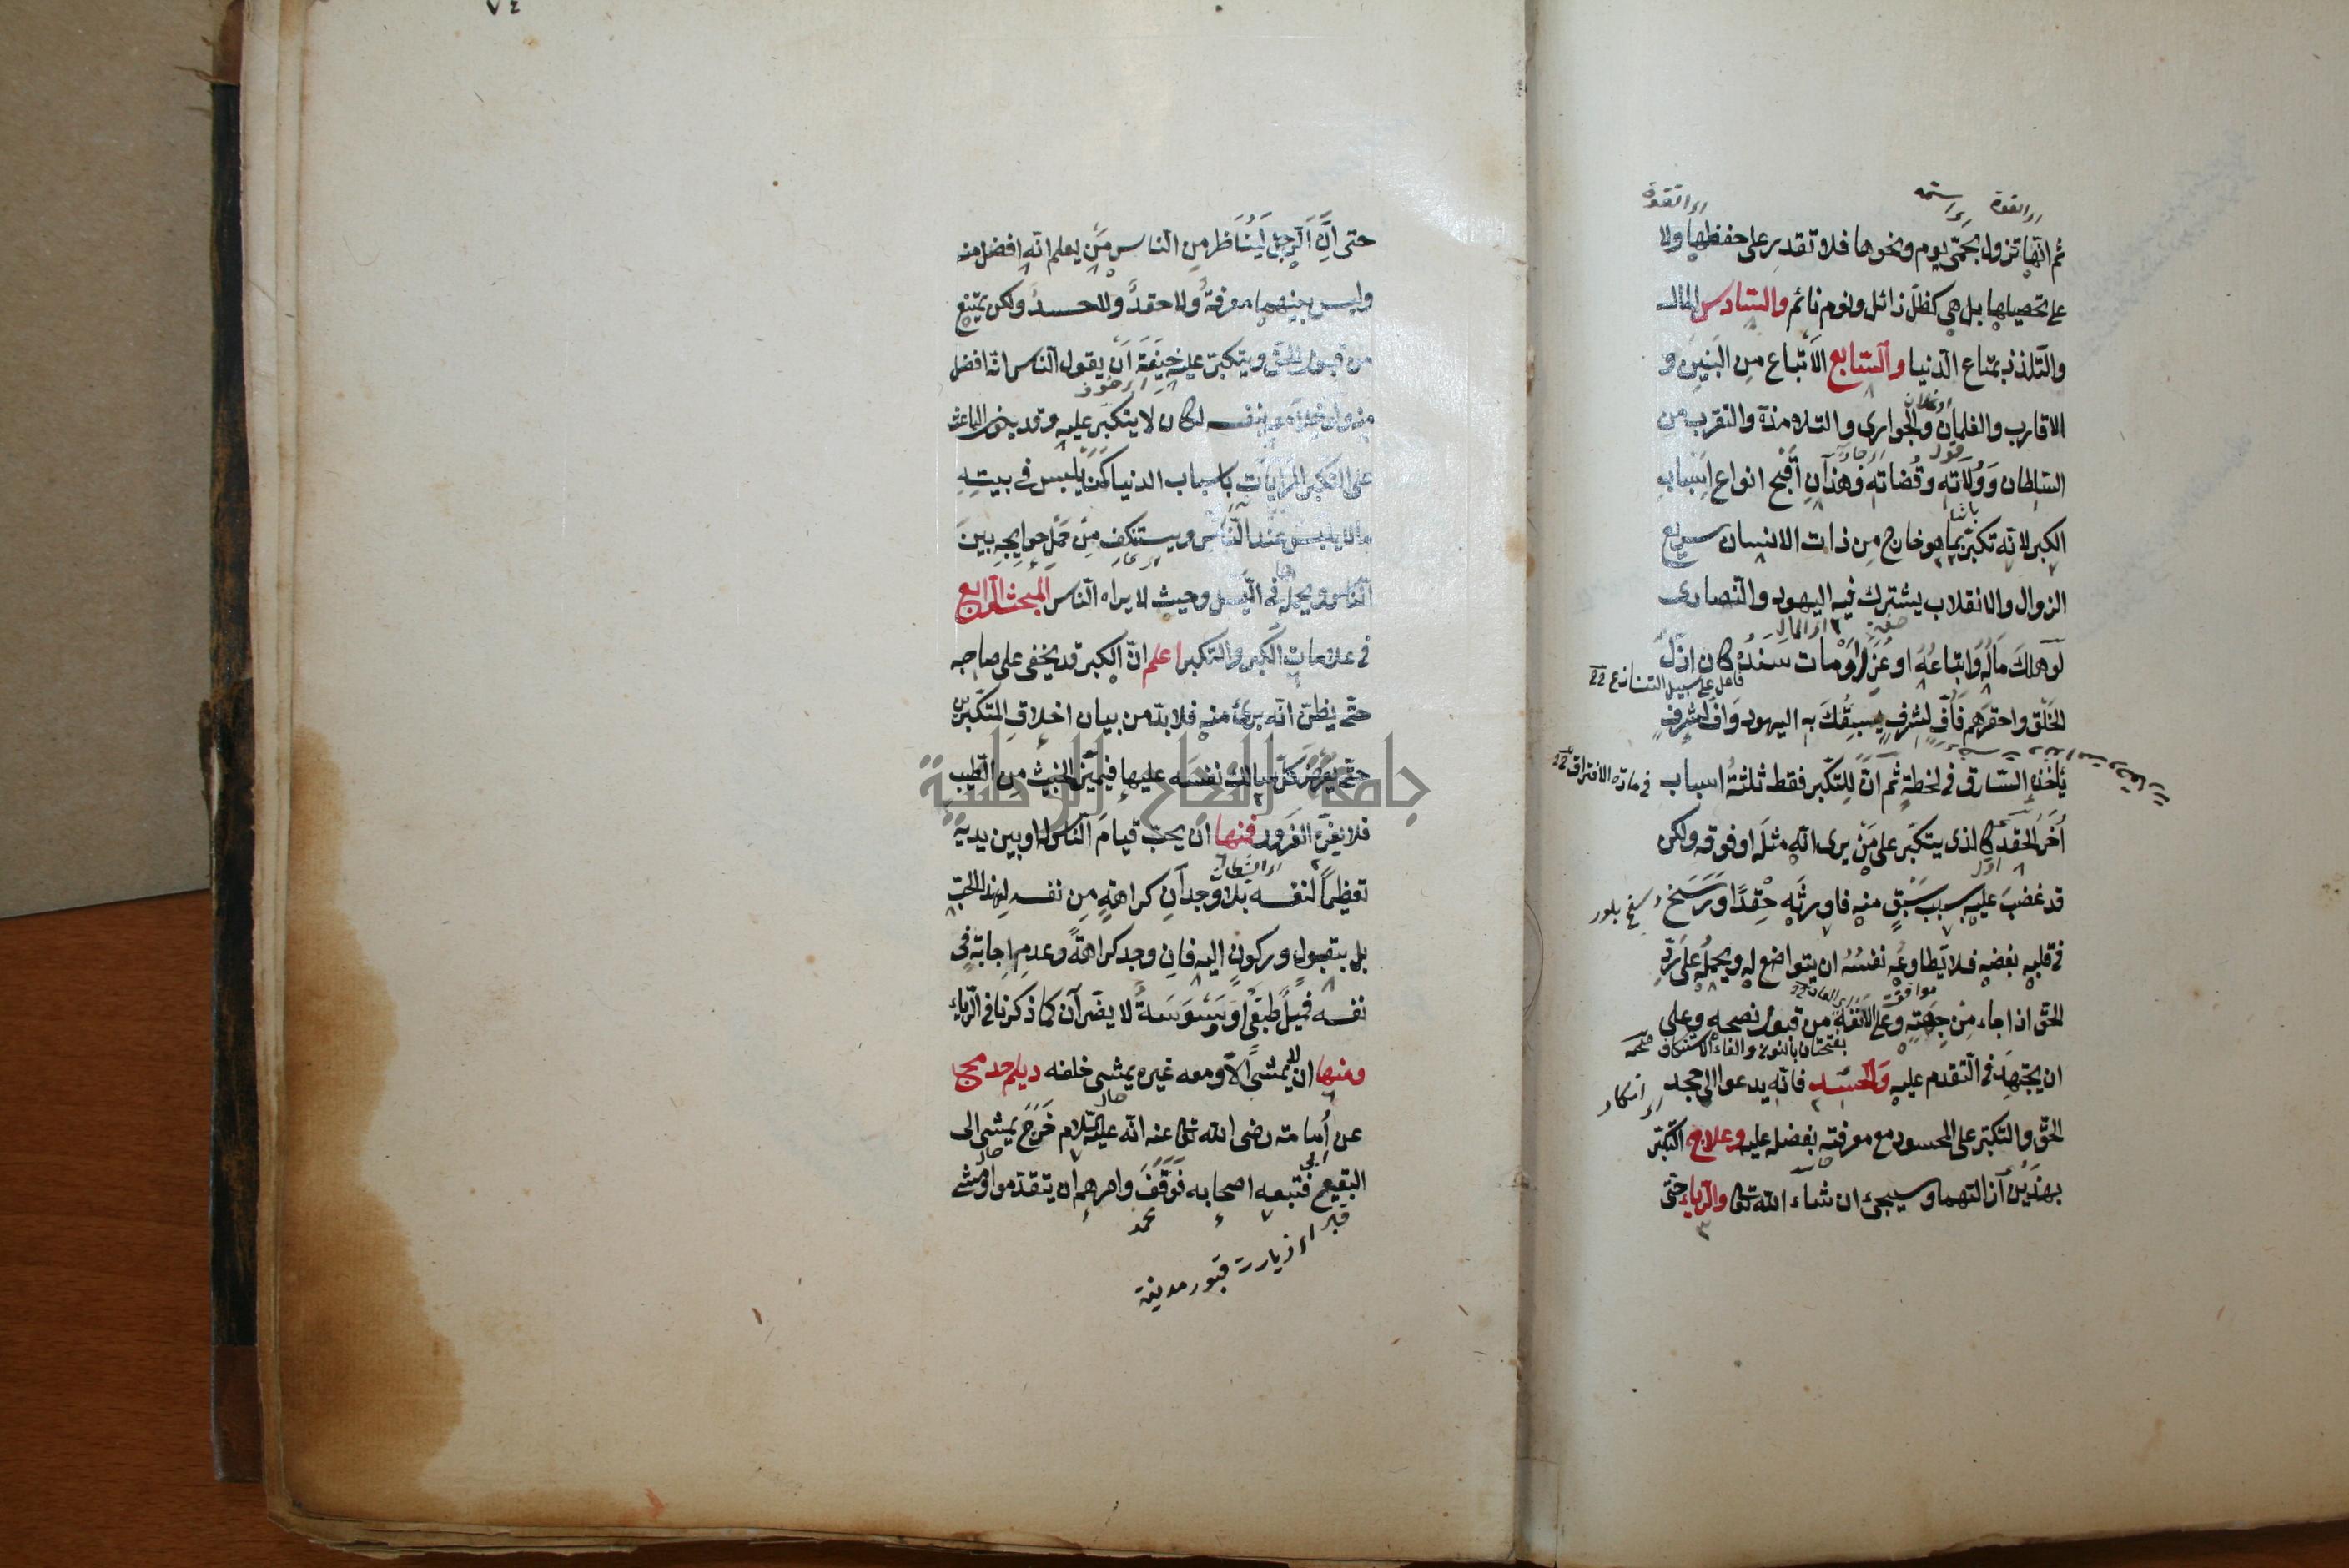 ثم انها تزول بحمى يوم ونحوها فلا تقدر على حفظها ولا
على تحصيلها بل هي كظل زائل ونوم نائم والسادس المال
والتلذذ بمتاع الدنيا والسابع الاتباع من البنين و
الاقارب والغلمان والجواري والتلامذة والتقرب من
السلطان وولاته وقضاته وهذان أقبح انواع اسباب
الكبر لانه تكبر بما هو خارج من ذات الانسان سريع
الزوال والانقلاب يشترك فيه اليهود والنصارى
لو هلك ماله واتباعه او عزل او مات سنده كان اذل
الخلق واحقرهم فأف لشرف يسبقك به اليهود واف لشرف
يأخذه السارق في لحظة ثم ان للتكبر فقط ثلثة اسباب
أخر الحقد كالذي يتكبر على من يرى انه مثله او فوقه ولكن
قد غضب عليه بسبب سبق منه فاورثه حقدا ورسخ
في قلبه بغضه فلا يطاوعه نفسه ان يتواضع له ويحمله على رد
الحق اذا جاء من جهته وعلى الانفة من قبول نصحه وعلى
ان يجتهد في التقدم عليه والحسد فانه يدعوا الى جحد
الحق والتكبر على المحسود مع معرفته بفضله عليه وعلاج التكبر
بهذين ازالتهما وسيجئ ان شاء الله تعالى والرياء حتى
اى القوة
اى القوة
فاعل على سبيل التنازع
في مادة الافتراق
بفتحتان بالنون والفاء الاستنكاف
اى انكار
٧٤
حتى ان الرجل ليناظر من الناس من يعلم انه افضل منه
وليس بينهما معرفة ولا حقد ولا حسد ولكن يمتنع
من قبول الحق ويتكبر عليه خيفة أن يقول الناس انه افضل
منه ولو خلا معه بنفسه لكان لا يتكبر عليه وقد يكون الباعث
على التكبر المراياة باسباب الدنيا كمن يلبس في بيته
ما لا يلبس عند الناس ويستنكف من حمل حوايجه بين
الناس ويحمله في الليل وحيث لا يراه الناس المبحث الرابع
في علامات الكبر والتكبر اعلم ان الكبر قد يخفى على صاحبه
حتى يظن انه برئ منه فلا بد من بيان اخلاق المتكبرين
حتى يعرض كل سالك نفسه عليها فيميز الخبيث من الطيب
فلا يغره الغرور فمنها ان يحب قيام الناس له او بين يديه
تعظيما لنفسه بلا وجدان كراهة من نفسه لهذا الحب
بل بقبول وركون اليه فان وجد كراهة وعدم اجابة في
نفسه فميل طبعي او وسوسة لا يضران كما ذكرنا في الرياء
ومنها ان لا يمشى الا ومعه غيره يمشى خلفه ديلم حد مج
عن أمامة رضى الله تعالى عنه انه عليه السلام خرج يمشى الى
البقيع فتبعه اصحابه فوقف وامرهم ان يتقدموا ومشى
اى زيارت قبور مدينة
جامعة النجاح الوطنية